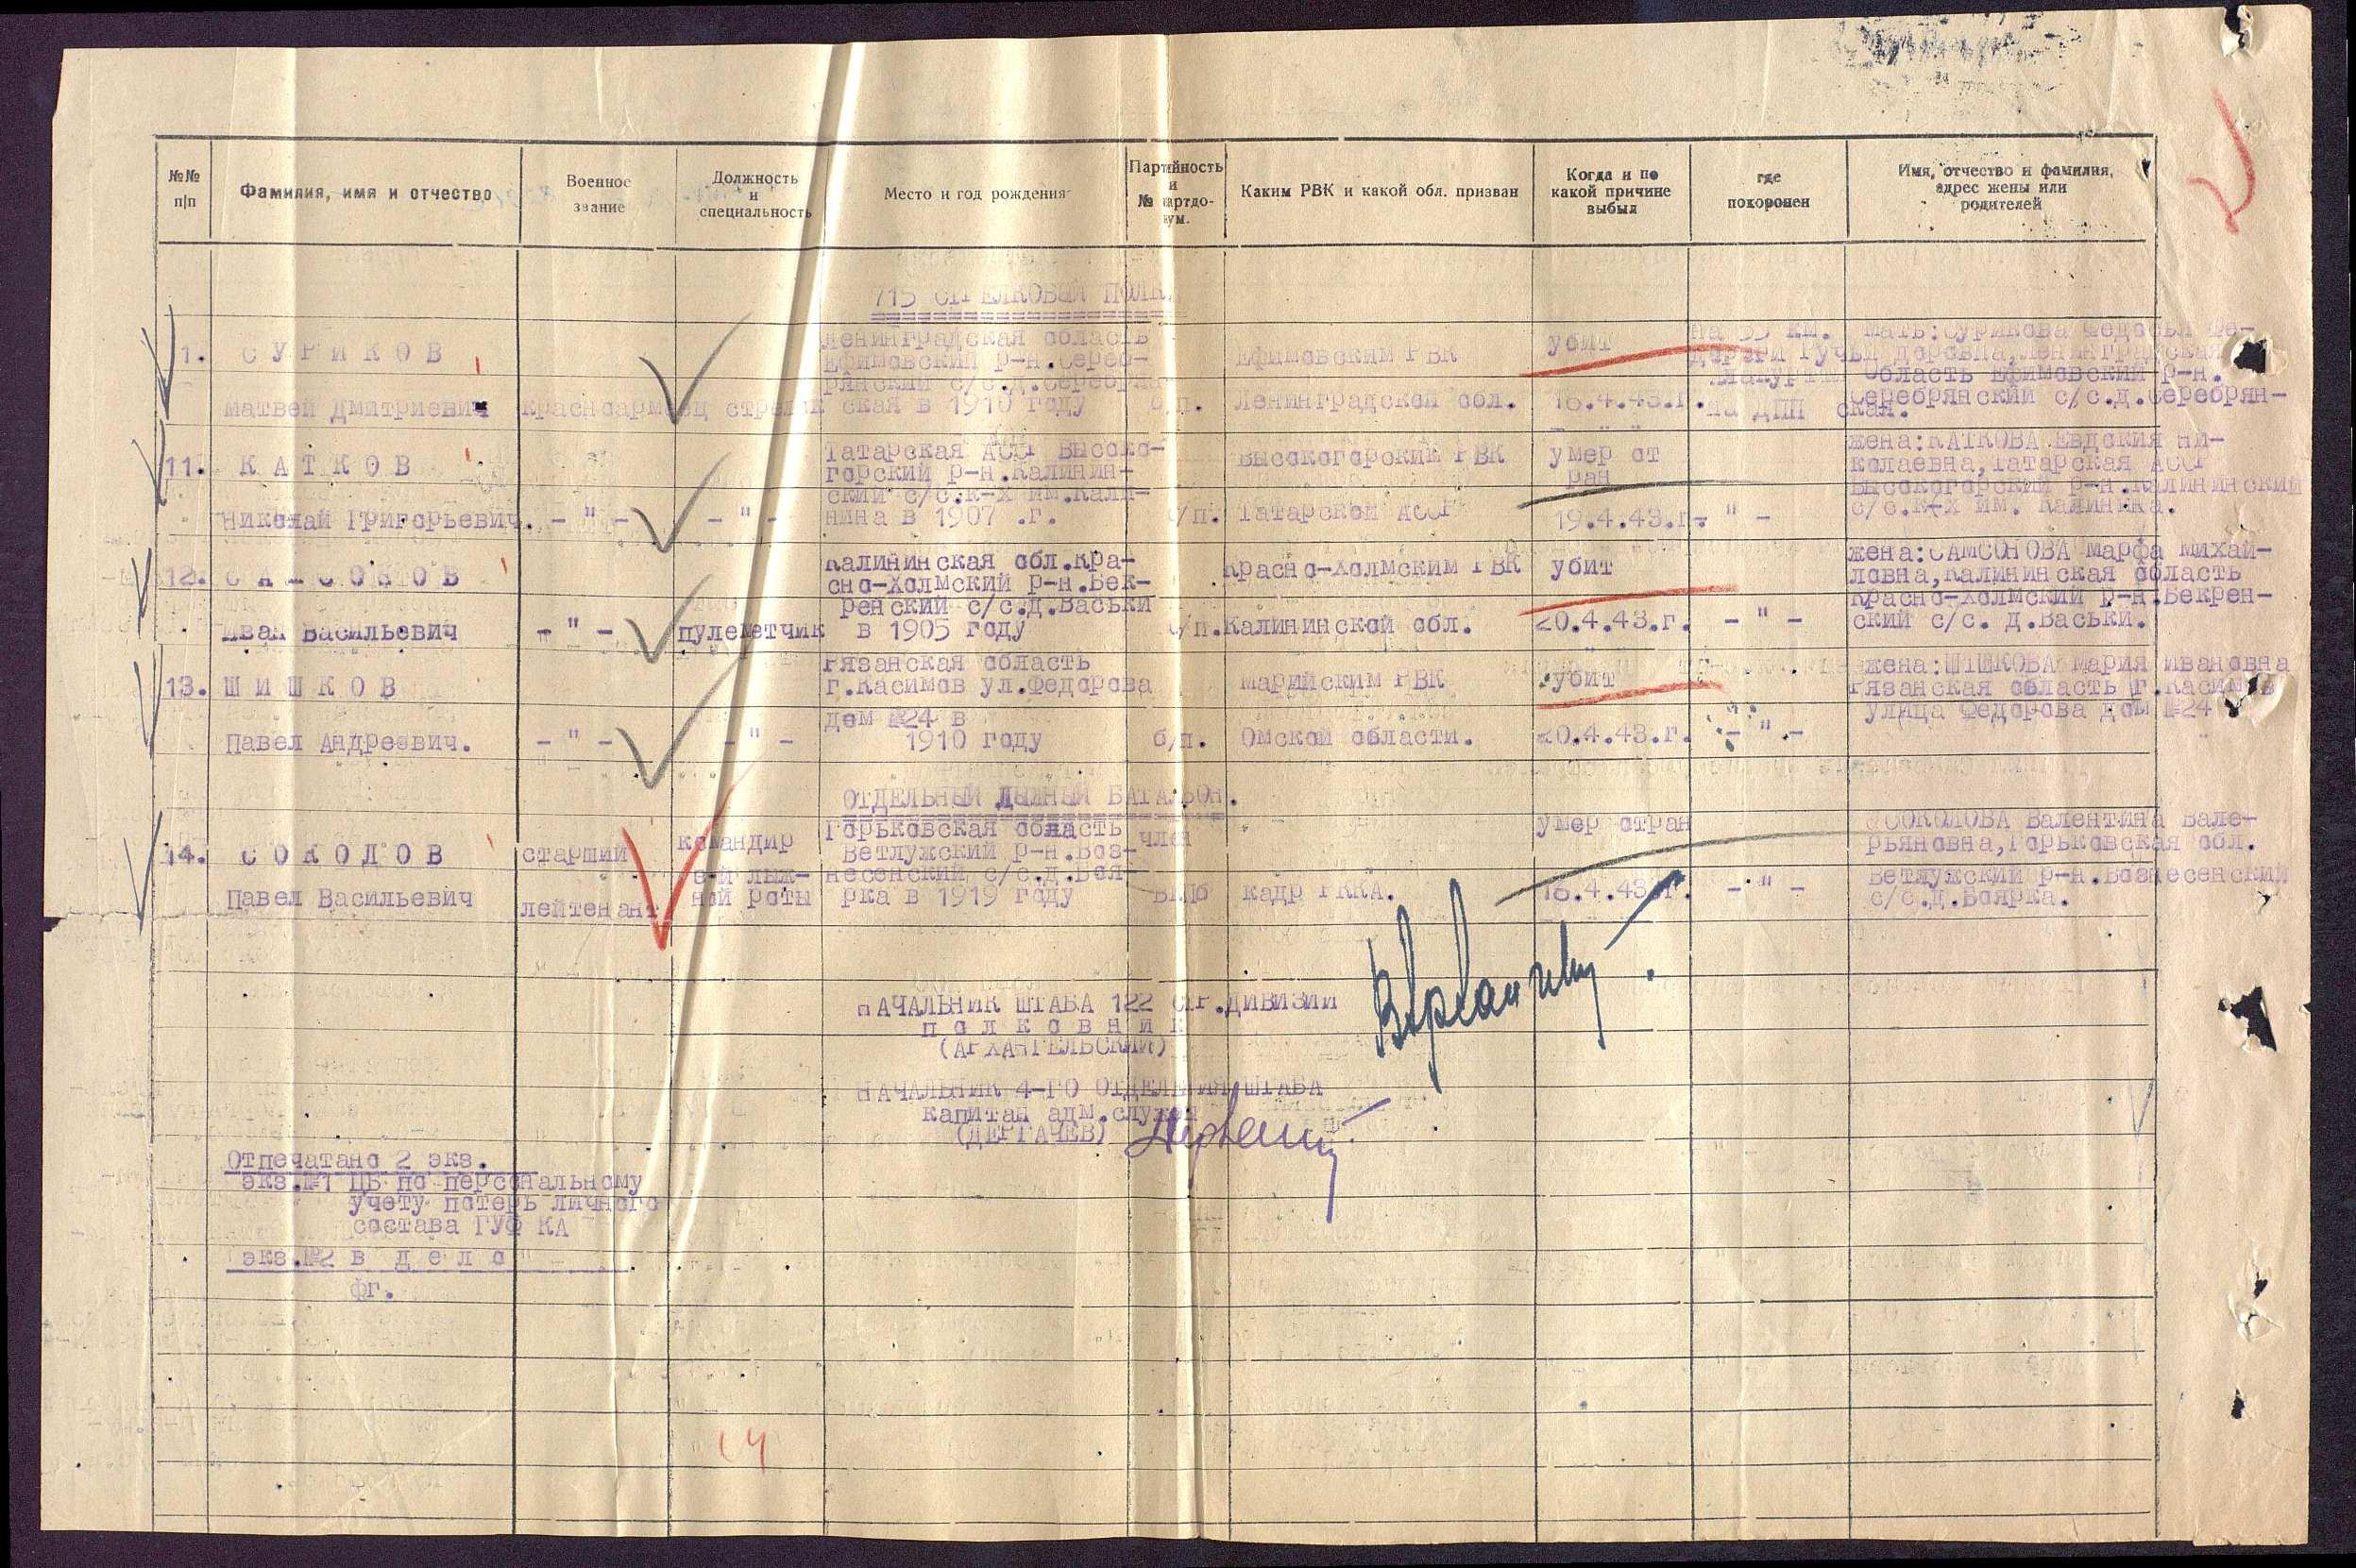 №№ п/п
Фамилия, имя и отчество
Военное звание
Должность и специальность
Место и год рождения
Партийность и № партдокум.
Каким РВК и какой обл. призван
Когда и по какой причине выбыл
где похоронен
Имя, отчество и фамилия, адрес жены или родителей
715 СТРЕЛКОВЫЙ ПОЛК
1. СУРИКОВ
Матвей Дмитриевич
красноармеец
стрелок
Ленинградская область
Ефимовский р-н.Сереб-
рянский с/с.д.Серебрян
ская в 1910 году
б/п.
Ефимовским РВК
Ленинградской обл.
убит
18.4.43.г.
на 33 км.
дороги Ручьи
на ДПП
Мать:Сурикова Федосья Фе-
доровна,Ленинградская
Область Ефимовский р-н.
Серебрянский с/с.д.Серебрян-
ская.
11. КАТКОВ
Николай Григорьевич.
- " -
- " -
Татарская АССР Высоко-
горский р-н.Калинин-
ский с/с.к-х им.Кали-
нина в 1907 .г.
б/п.
Высокогорским РВК
Татарской АССР
умер от
ран
19.4.43.г.
- " -
жена:КАТКОВА Евдокия Ни-
колаевна,Татарская АССР
Высокогорский р-н.Калининский
с/с.к-х им. Калинина.
12. САМСОНОВ
Иван Васильевич
- " -
пулеметчик
Калининская обл.Кра-
сно-Холмский р-н.Бек-
ренский с/с.д.Васьки
в 1905 году
б/п.
Красно-Холмским РВК
Калининской обл.
убит
20.4.43.г.
- " -
жена:САМСОНОВА Марфа Михай-
ловна,Калининская область
Красно-Холмский р-н.Бекрен-
ский с/с. д.Васьки.
13. ШИШКОВ
Павел Андреевич.
- " -
- " -
Рязанская область
г.Касимов ул.Федорова
дом №24 в
1910 году
б/п.
Марийским РВК
Омской области.
убит
20.4.43.г.
- " -
жена:ШИШКОВА Мария Ивановна
Рязанская область г.Касимов
улица Федорова дом №24
ОТДЕЛЬНЫЙ ЛЫЖНЫЙ БАТАЛЬОН.
14. СОКОЛОВ
Павел Васильевич
старший
лейтенант
командир
лыж-
ной роты
Горьковская область
Ветлужский р-н.Воз-
несенский с/с.д.Боя-
рка в 1919 году
член
ВКПб
кадр РККА.
умер отран
18.4.43.г.
- " -
СОКОЛОВА Валентина Вале-
рьяновна,Горьковская обл.
Ветлужский р-н.Вознесенский
с/с.д.Боярка.
НАЧАЛЬНИК ШТАБА 122 СТР.ДИВИЗИИ
полковник
(АРХАНГЕЛЬСКИЙ)
НАЧАЛЬНИК 4-ГО ОТДЕЛЕНИЯ ШТАБА
капитан адм.службы
(ДЕРГАЧЕВ)
Отпечатано 2 экз.
экз.№1 ЦБ по персональному
учету потерь личного
состава ГУФ КА
экз.№2 в дело
фг.
14